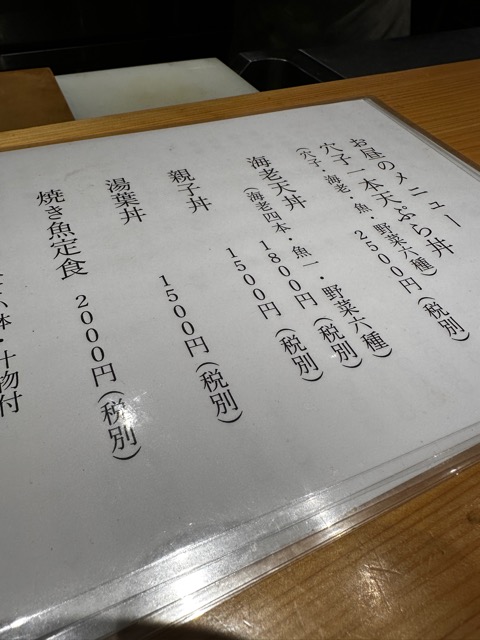 お昼のメニュー
穴子一本天ぷら丼
(穴子・海老・魚・野菜六種)
2500円(税別)
海老天丼
(海老四本・魚一・野菜六種)
1800円(税別)
親子丼
1500円(税別)
湯葉丼
1500円(税別)
焼き魚定食
2000円(税別)
小鉢・汁物付